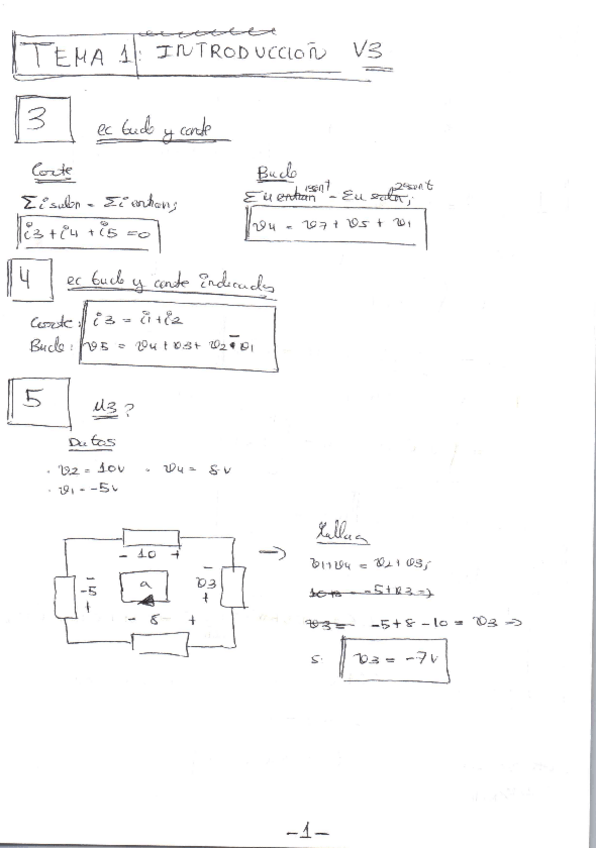 TEMA 1: INTRODUCCIÓN V3
3
ec bucle y corte
Corte
Bucle
Σi salen = Σi entran;
Σu entran 1sent = Σu salen 2sent;
i3 + i4 + i5 = 0
v4 = v7 + v5 + v1
4
ec bucle y corte indicados
Corte: i3 = i1 + i2
Bucle: v5 = v4 + v3 + v2 - v1
5
u3?
Datos
· v2 = 10v · v4 = 8v
· v1 = -5v
- 10 +
- -5 +
a
- v3 +
- 8 +
→
v1+v4 = v2+v3;
-5+v3 =>
v3 = -5+8-10 = v3 =>
v3 = -7v
-1-